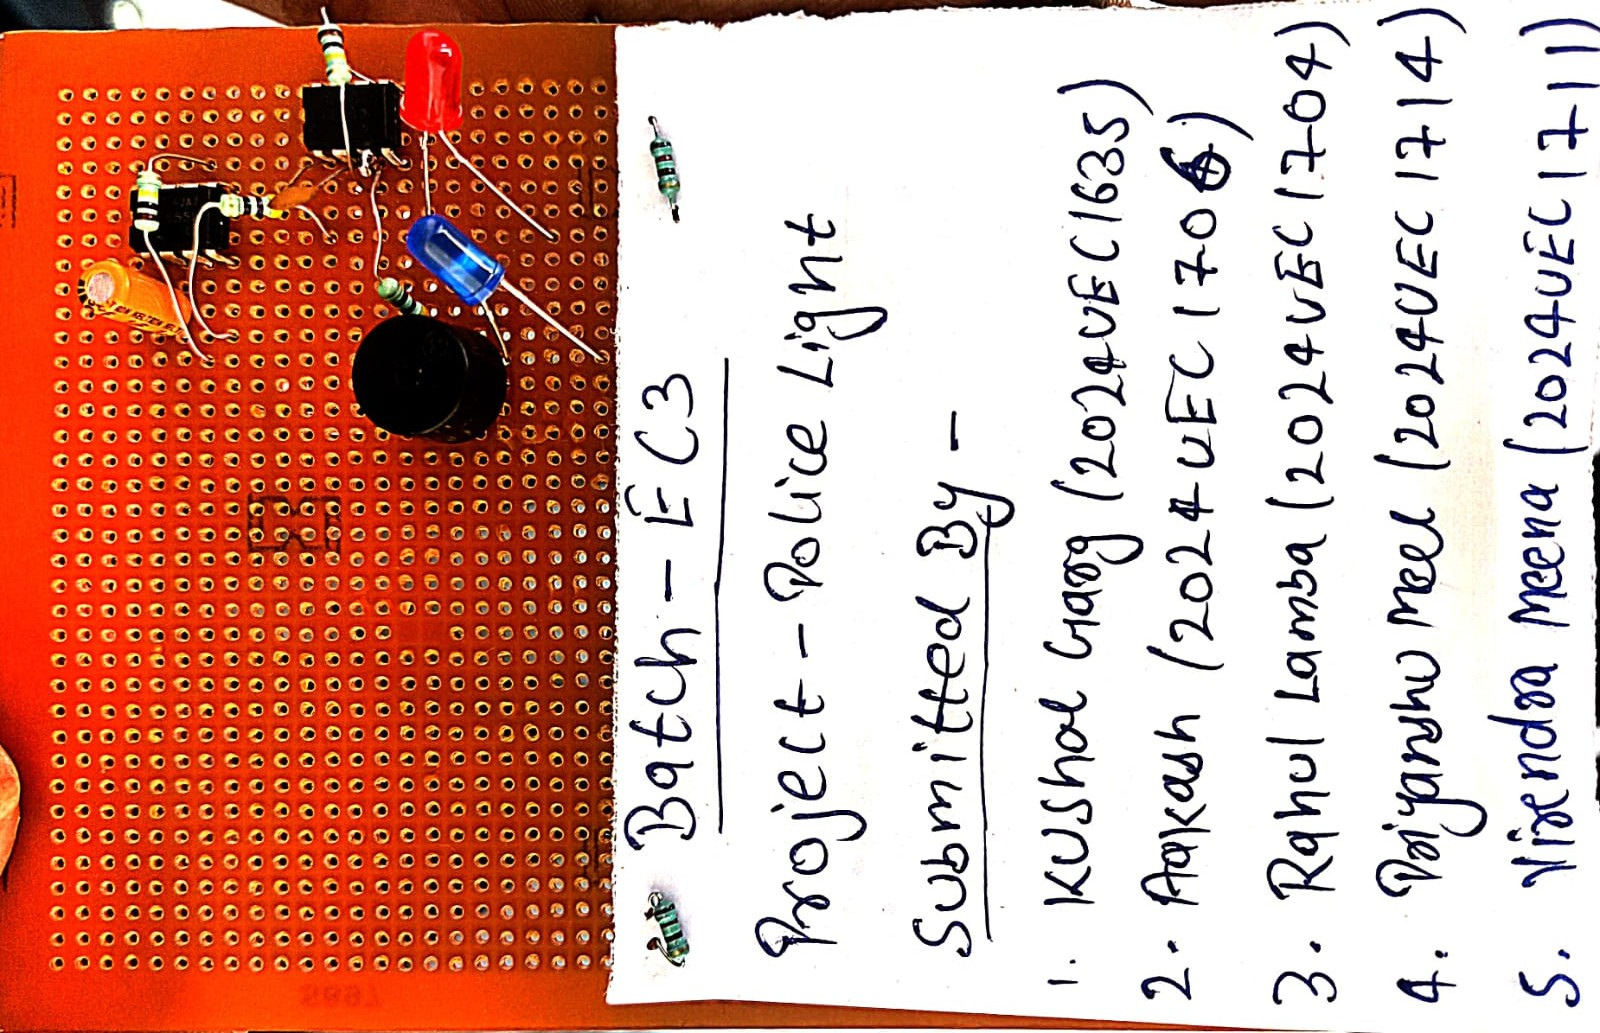 Batch - EC3
Project - Police Light
Submitted By -
1. Kushal Garg (2024UEC1635)
2. Aakash (2024UEC1706)
3. Rahul Lamba (2024UEC1704)
4. Priyanshu Meel (2024UEC1714)
5. Virendra Meena (2024UEC1711)
5897